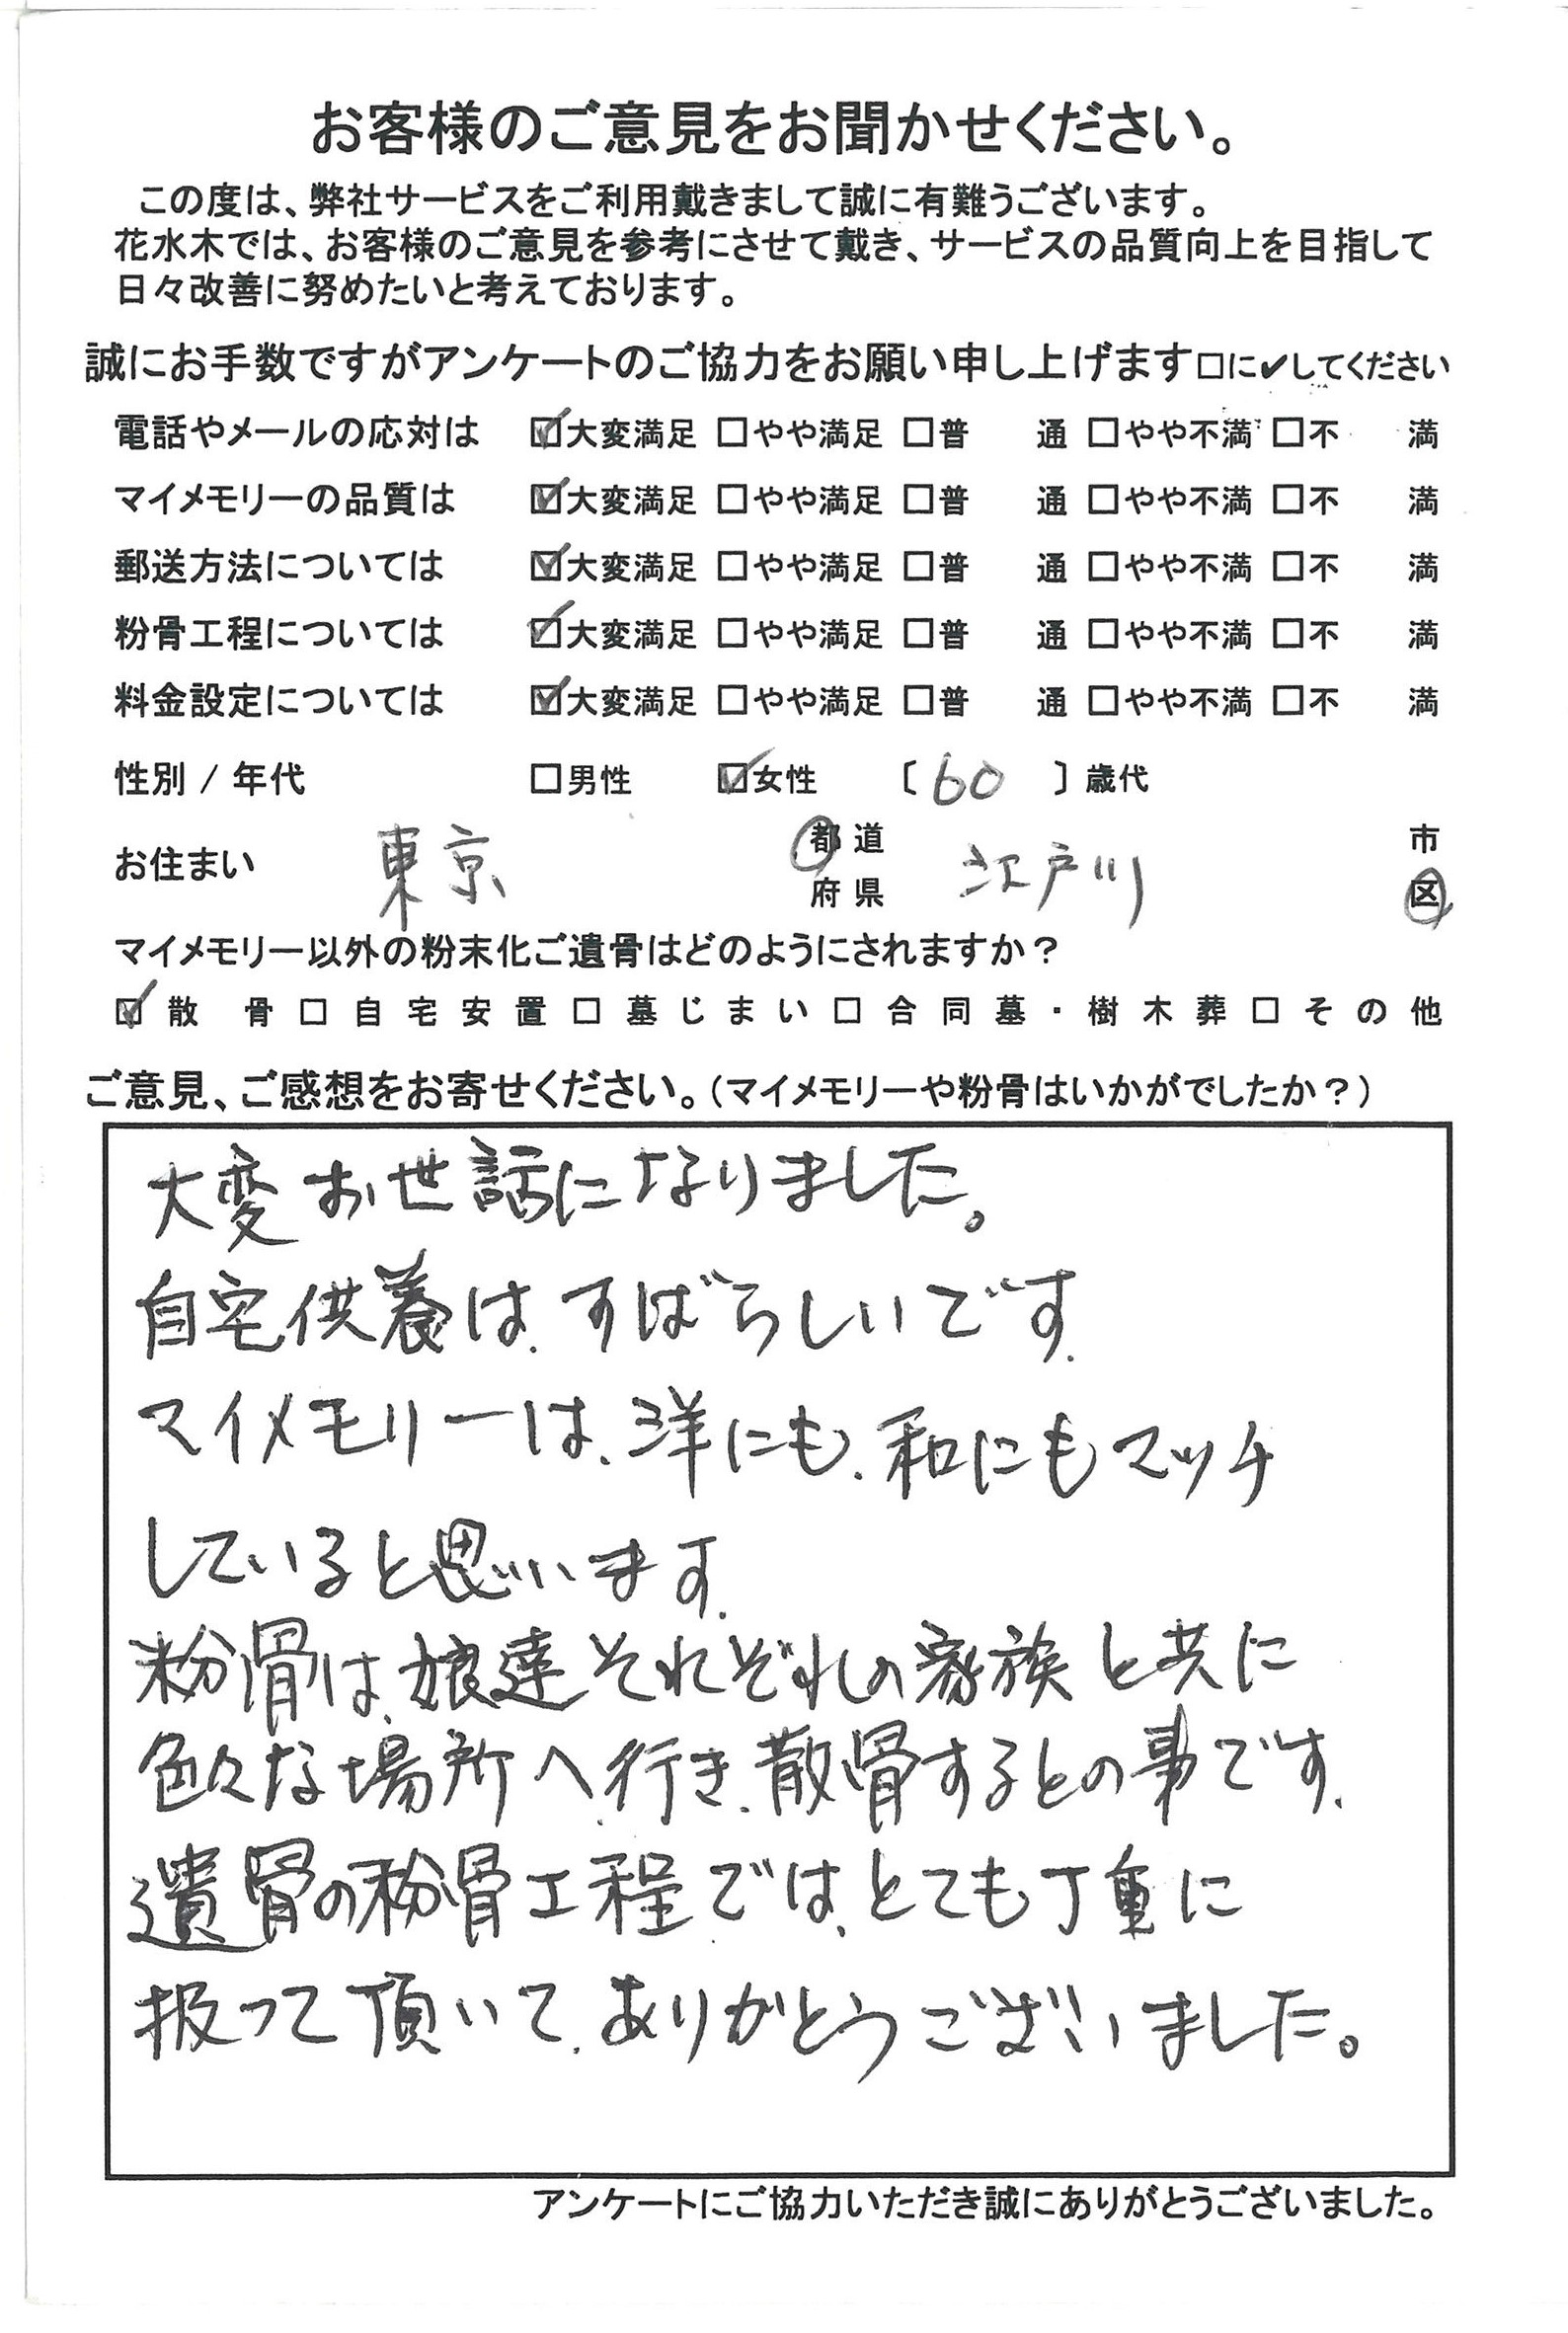 お客様のご意見をお聞かせください。
この度は、弊社サービスをご利用戴きまして誠に有難うございます。
花水木では、お客様のご意見を参考にさせて戴き、サービスの品質向上を目指して
日々改善に努めたいと考えております。
誠にお手数ですがアンケートのご協力をお願い申し上げます□に✔してください
電話やメールの応対は ☑大変満足 □やや満足 □普 通 □やや不満 □不 満
マイメモリーの品質は ☑大変満足 □やや満足 □普 通 □やや不満 □不 満
郵送方法については ☑大変満足 □やや満足 □普 通 □やや不満 □不 満
粉骨工程については ☑大変満足 □やや満足 □普 通 □やや不満 □不 満
料金設定については ☑大変満足 □やや満足 □普 通 □やや不満 □不 満
性別 / 年代 □男性 ☑女性 〔 60 〕歳代
お住まい 東京 都道府県 江戸川 市区
マイメモリー以外の粉末化ご遺骨はどのようにされますか？
☑散 骨□自宅安置□墓じまい□合同墓・樹木葬□その他
ご意見、ご感想をお寄せください。（マイメモリーや粉骨はいかがでしたか？）
大変お世話になりました。
自宅供養は、すばらしいです。
マイメモリーは、洋にも、和にもマッチ
していると思います。
粉骨は、娘達それぞれの家族と共に
色々な場所へ、行き、散骨するとの事です。
遺骨の粉骨工程では、とても丁重に
扱って頂いて、ありがとうございました。
アンケートにご協力いただき誠にありがとうございました。